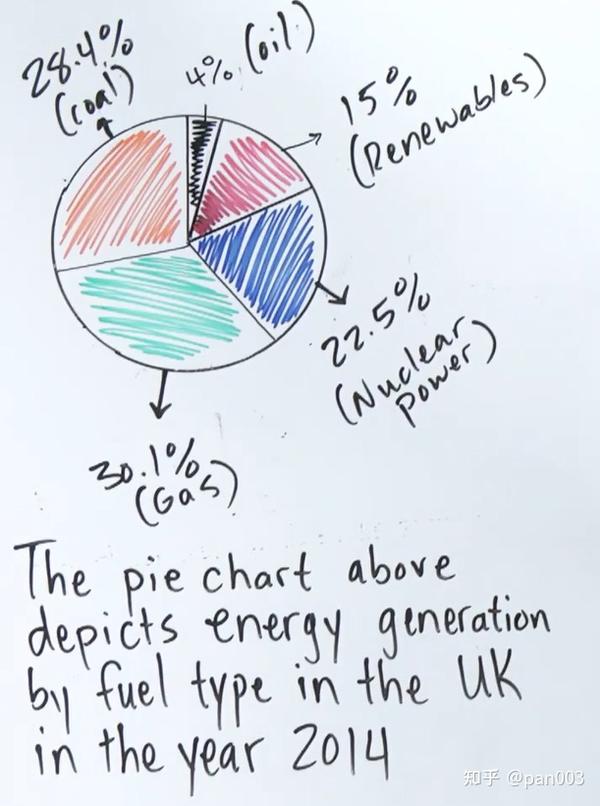 28.4%
(coal)
4% (oil)
15%
(Renewables)
22.5%
(Nuclear
power)
30.1%
(Gas)
The pie chart above
depicts energy generation
by fuel type in the UK
in the year 2014
知乎 @pan003